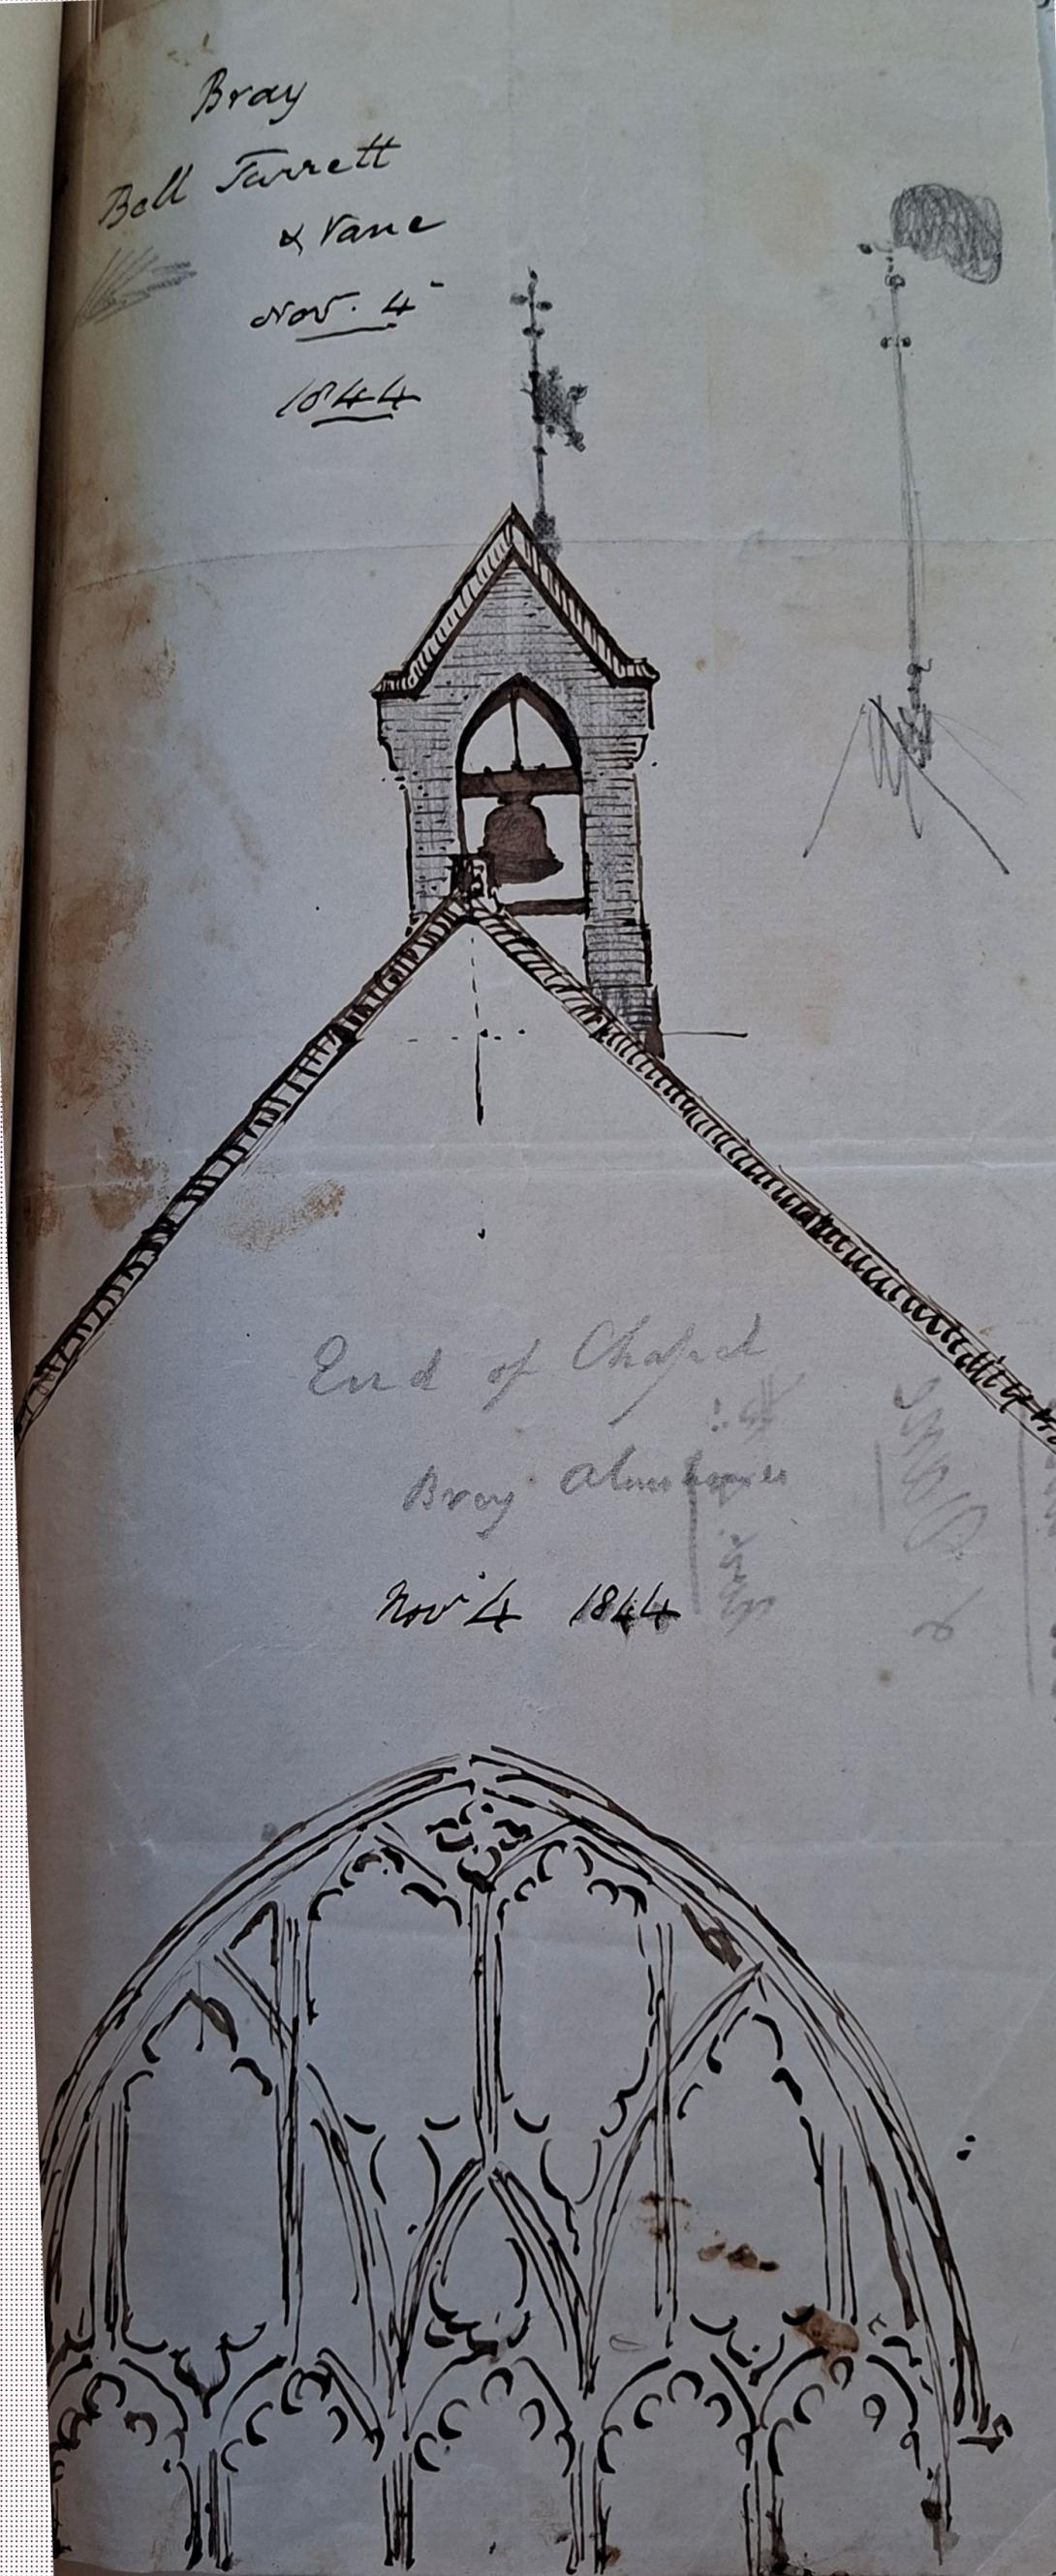 Bray
Bell Turrett
& Vane
Nov. 4
1844
End of Chapel
Bray Almshouses
Nov 4 1844